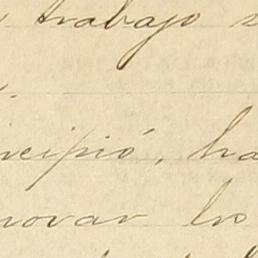 trabajo
ncipió, ha
novar los